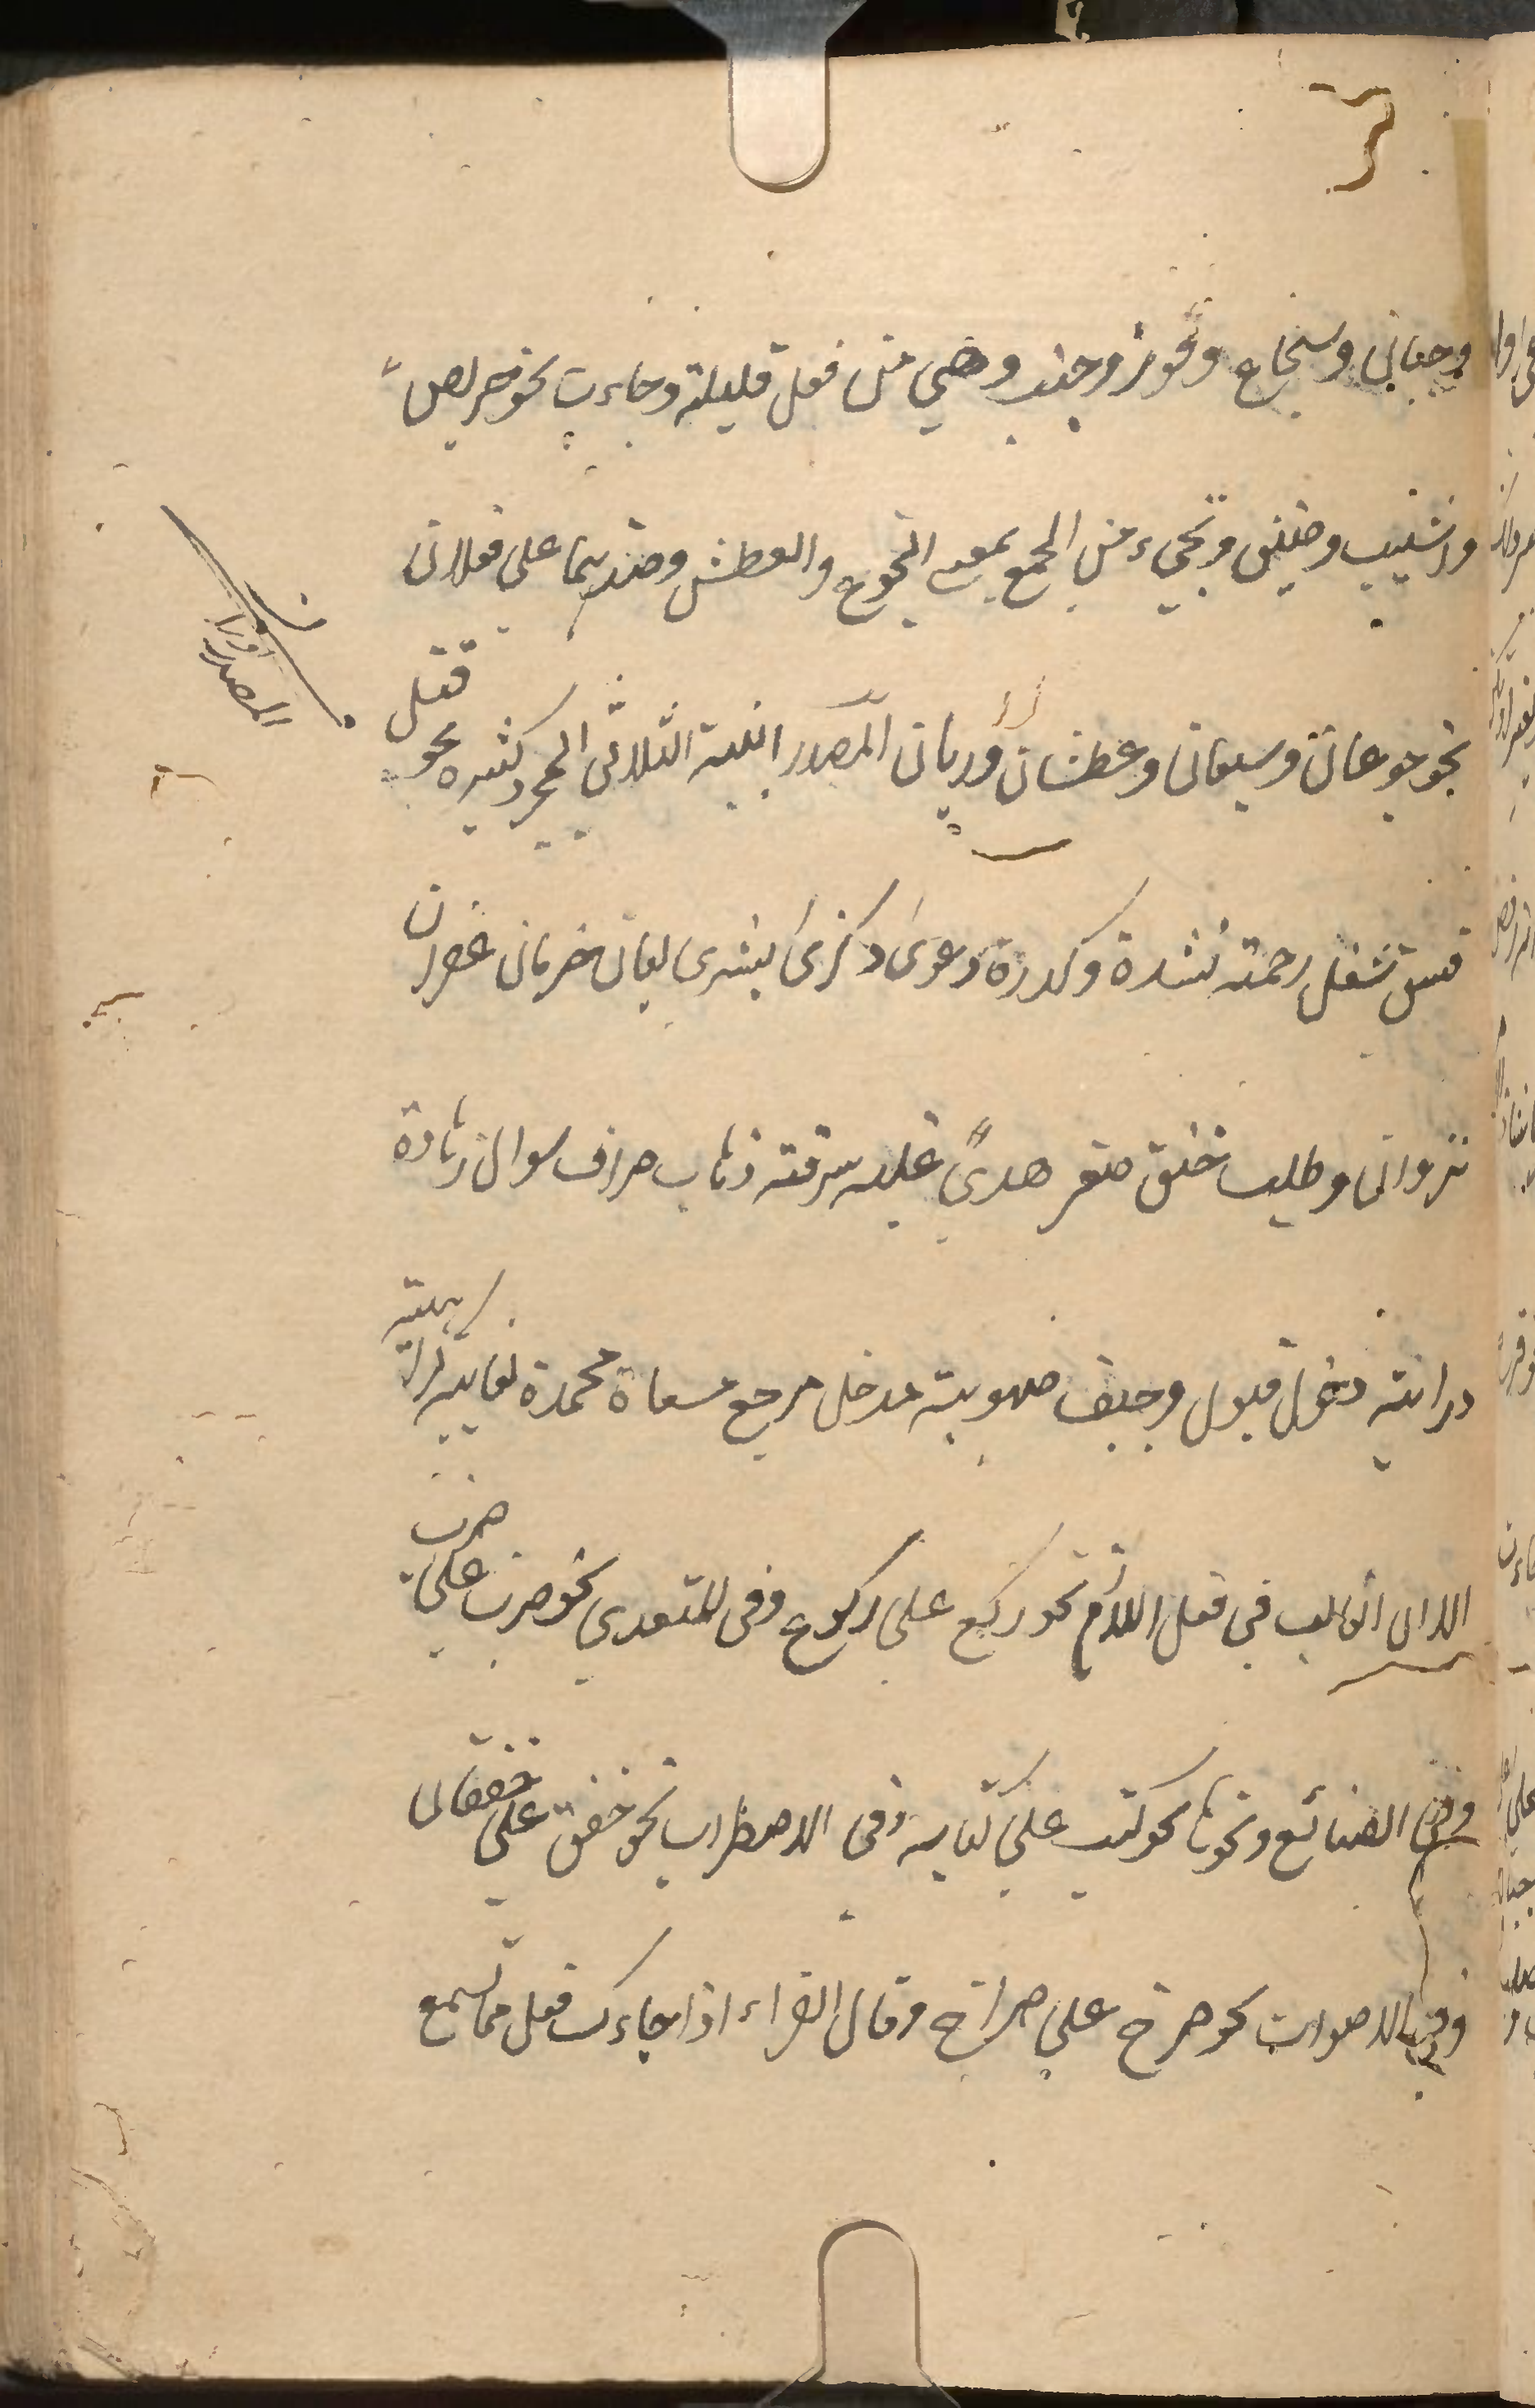 وجبان وشجاع وقور وجنب وهي من فعل قليلة وجاءت نحو حريص
واشيب وضيق وتجيء من الجمع بمعنى الجوع والعطش وضدهما على فعلان
نحو جوعان وشبعان وعطشان وريان المصدر ابنية الثلاثي المجرد كثيرة نحو قتل
فسق شغل رحمة نشدة وكدرة دعوى ذكرى بشرى ليان حرمان غفران
نزوان وطلب خنق صغر هدى غلبة سرقة ذهاب صراف سوال زهادة
دراية دخول قبول وجيف صهوبة مدخل مرجع مسعاة محمدة بغاية كراهية
الا ان الغالب في فعل اللازم نحو ركع على ركوع وفي المتعدي نحو ضرب على ضرب
وفي الصنائع ونحوها نحو كتب على كتابة وفي الاضطراب نحو خفق على خفقان
وفي الاصوات نحو صرخ على صراخ وقال الفراء اذا جاءك فعل مما لم تسمع
المصدر